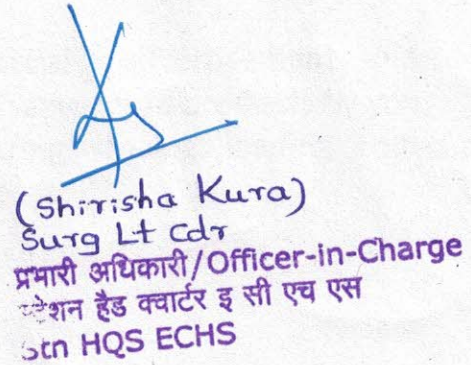 (Shirisha Kura)
Surg Lt Cdr
प्रभारी अधिकारी/Officer-in-Charge
हैड क्वार्टर इ सी एच एस
HQS ECHS